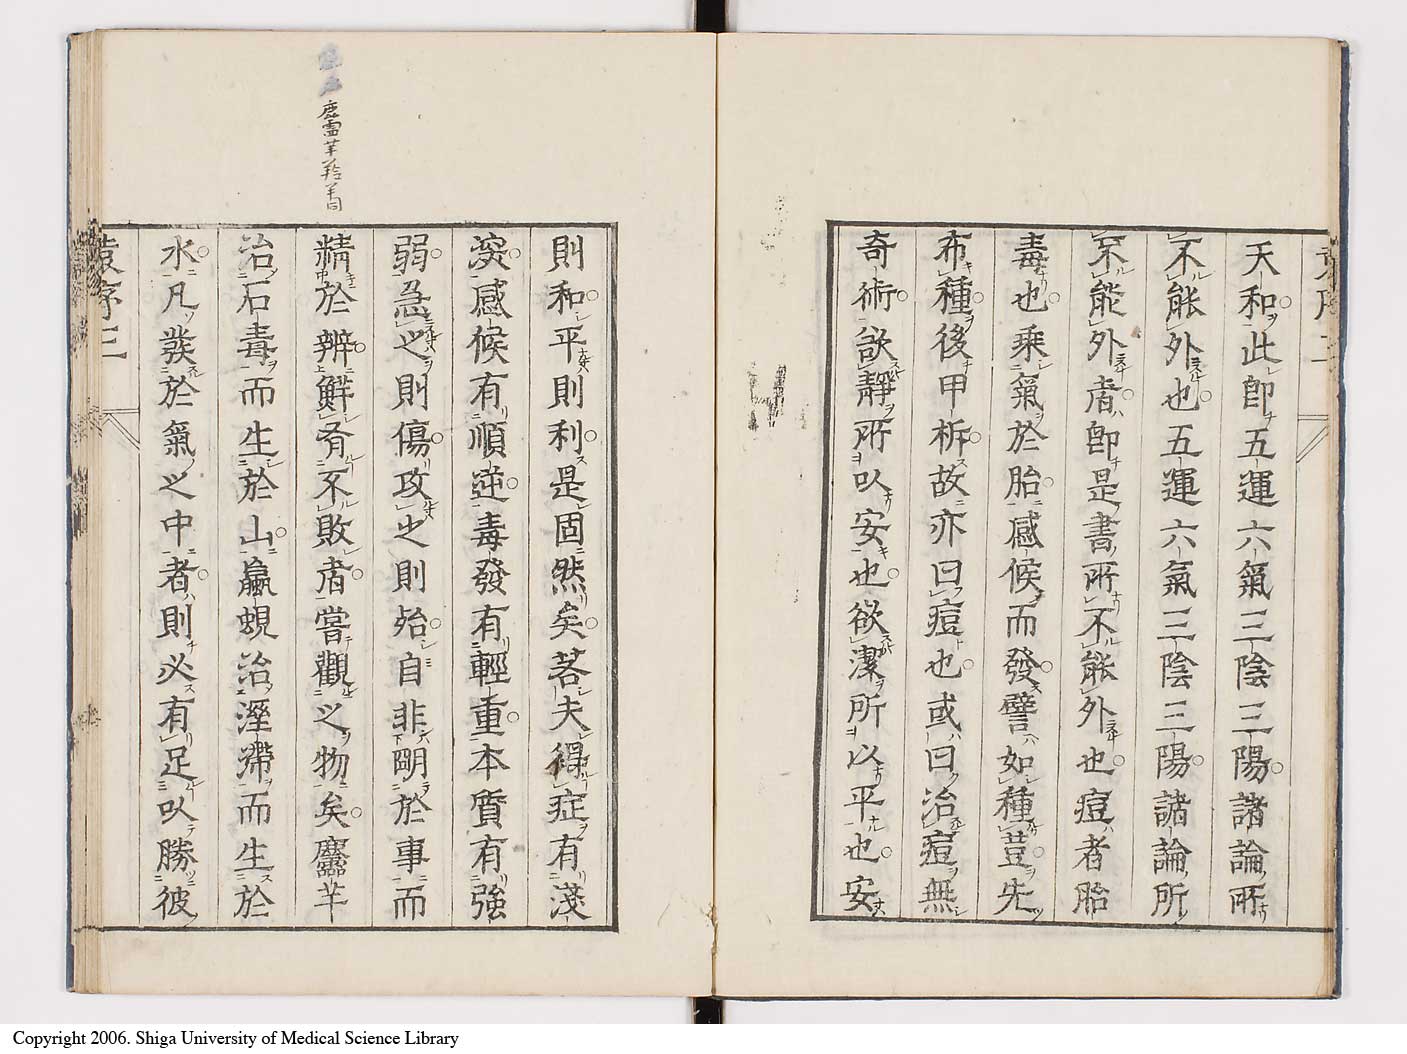 天和此卽五運六氣三陰三陽諸論所
不能外也五運六氣三陰三陽諸論所
不能外者卽是書所不能外也痘者胎
毒也乗氣於胎感候而發譬如種荳先
布種後甲柝故亦曰痘也或曰治痘無
奇術欲靜所以安也欲潔所以平也安
則和平則利是固然矣茖夫得症有淺
深感候有順逆毒發有輕重本質有強
弱急之則傷攻之則殆自非明於事而
精於辨鮮有不敗者嘗觀之物矣麢羊
治石毒而生於山蠃蜆治溼滯而生於
水凡發於氣之中者則必有足以勝彼
序三
Copyright 2006. Shiga University of Medical Science Library